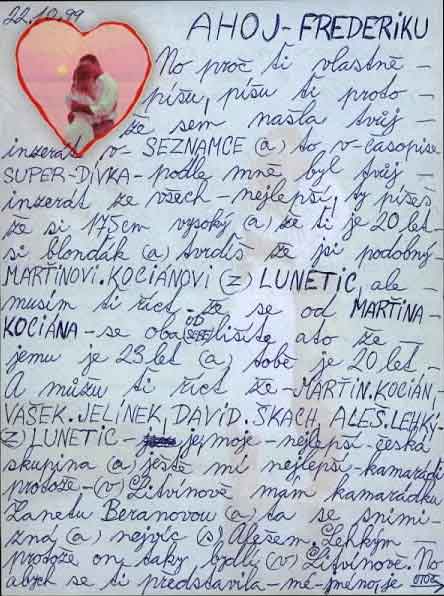 22.10.99
AHOJ-FREDERiKU
No proč ti vlastně -
píšu, píšu ti proto -
že sem našla tvůj -
inzerát v- SEZNAMCE (a) to, v-časopise
SUPER-DÍVKA- podle mně byl tvůj -
inzerát ze všech- nejlepší, ty píšeš
že si 175cm vysoký (a) že ti je 20 let-
si blonďák (a) tvrdíš že jsi podobný-
MARŤINOVI.KOCIÁNOVI (z) LUNETIC, ale -
musím ti říct - že se od MARŤINA-
KOCIÁNA - se oba OD SEBE lišíte ato že -
jemu je 23 let (a) tobě je 20 let -
A můžu ti říct že -MARŤIN.KOCIÁN,
VAŠEK.JELÍNEK, DAVID.ŠKACH, ALEŠ.LEHKÝ-
(z) LUNETIC - je moje - nejlepší - česká
skupina (a) ještě mí nejlepší-kamarádi
protože - (v) Litvínově mám kamarádku
Žanetu Beranovou (a) ta se snimi-
zná (a) nejvíc (s) Alešem. Lehkým -
protože on, taky bydlí (v) Litvínově. No
abych se ti představila - mé-jméno, je OTOČ